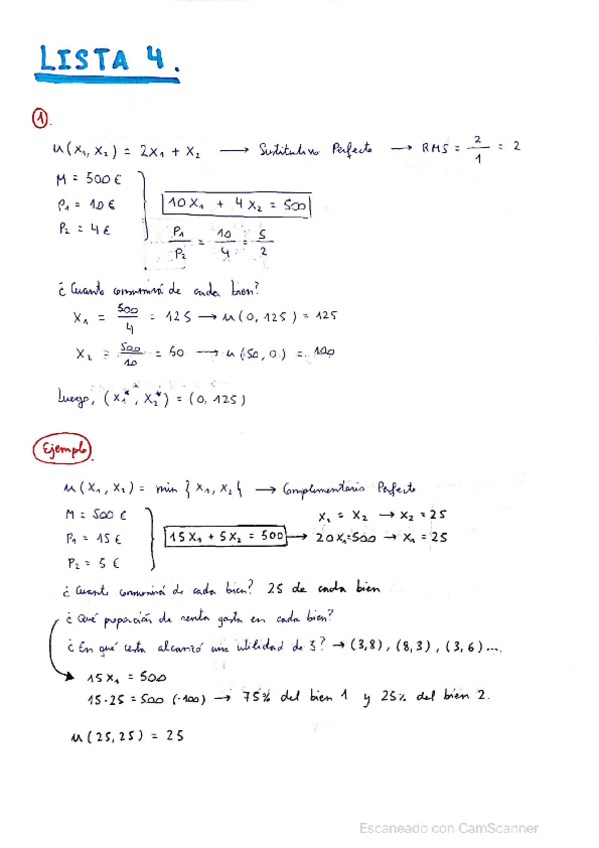 LISTA 4.
1.
u(x₁, x₂) = 2x₁ + x₂ → Sustitutivo Perfecto → RMS = 2/1 = 2
M = 500 €
P₁ = 10 €
P₂ = 4 €
10x₁ + 4x₂ = 500
P₁/P₂ = 10/4 = 5/2
¿Cuanto consumirá de cada bien?
x₁ = 500/4 = 125 → u(0, 125) = 125
x₂ = 500/10 = 50 → u(50, 0) = 100
Luego, (x₁*, x₂*) = (0, 125)
Ejemplo.
u(x₁, x₂) = min { x₁, x₂ } → Complementario Perfecto
M = 500 €
P₁ = 15 €
P₂ = 5 €
15x₁ + 5x₂ = 500 → 20x₁=500 → x₁ = 25
x₁ = x₂ → x₂ = 25
¿Cuanto consumirá de cada bien? 25 de cada bien
¿Qué proporción de renta gasta en cada bien?
¿En qué cesta alcanzó una utilidad de 3? → (3,8), (8,3), (3,6)...
15x₁ = 500
15·25 = 500 (·100) → 75% del bien 1 y 25% del bien 2.
u(25,25) = 25
Escaneado con CamScanner